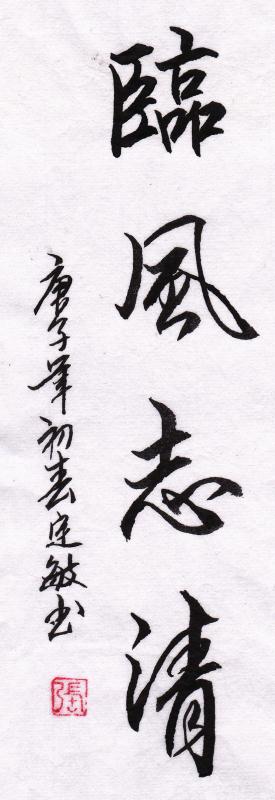 臨風志清
庚子年初春定敏书
張